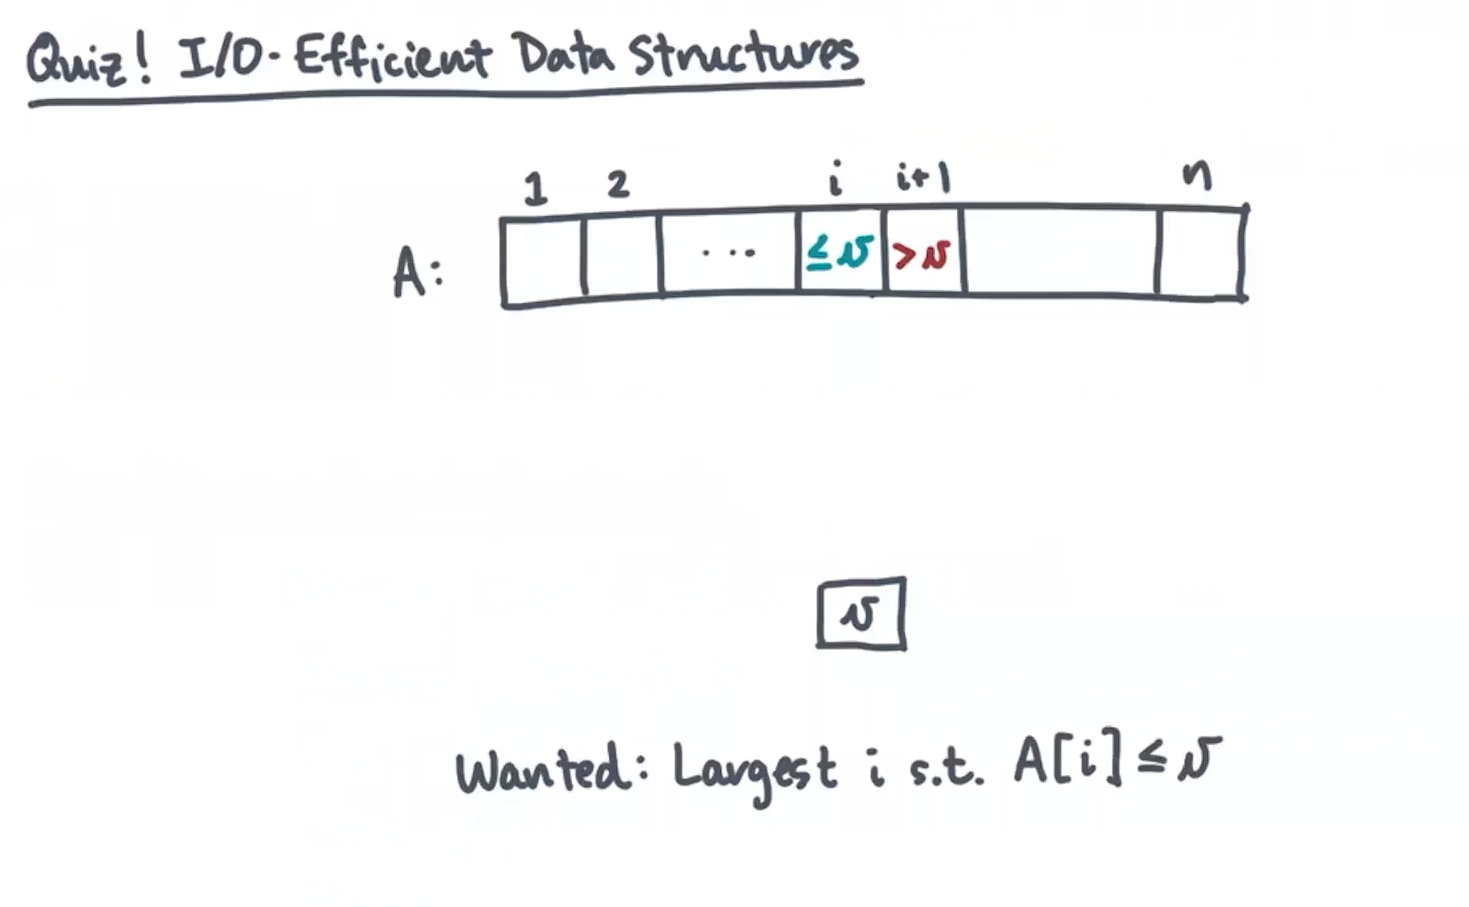 Quiz! I/O-Efficient Data Structures
1 2 i i+1 n
A: ... ≤v >v
v
Wanted: Largest i s.t. A[i] ≤ v